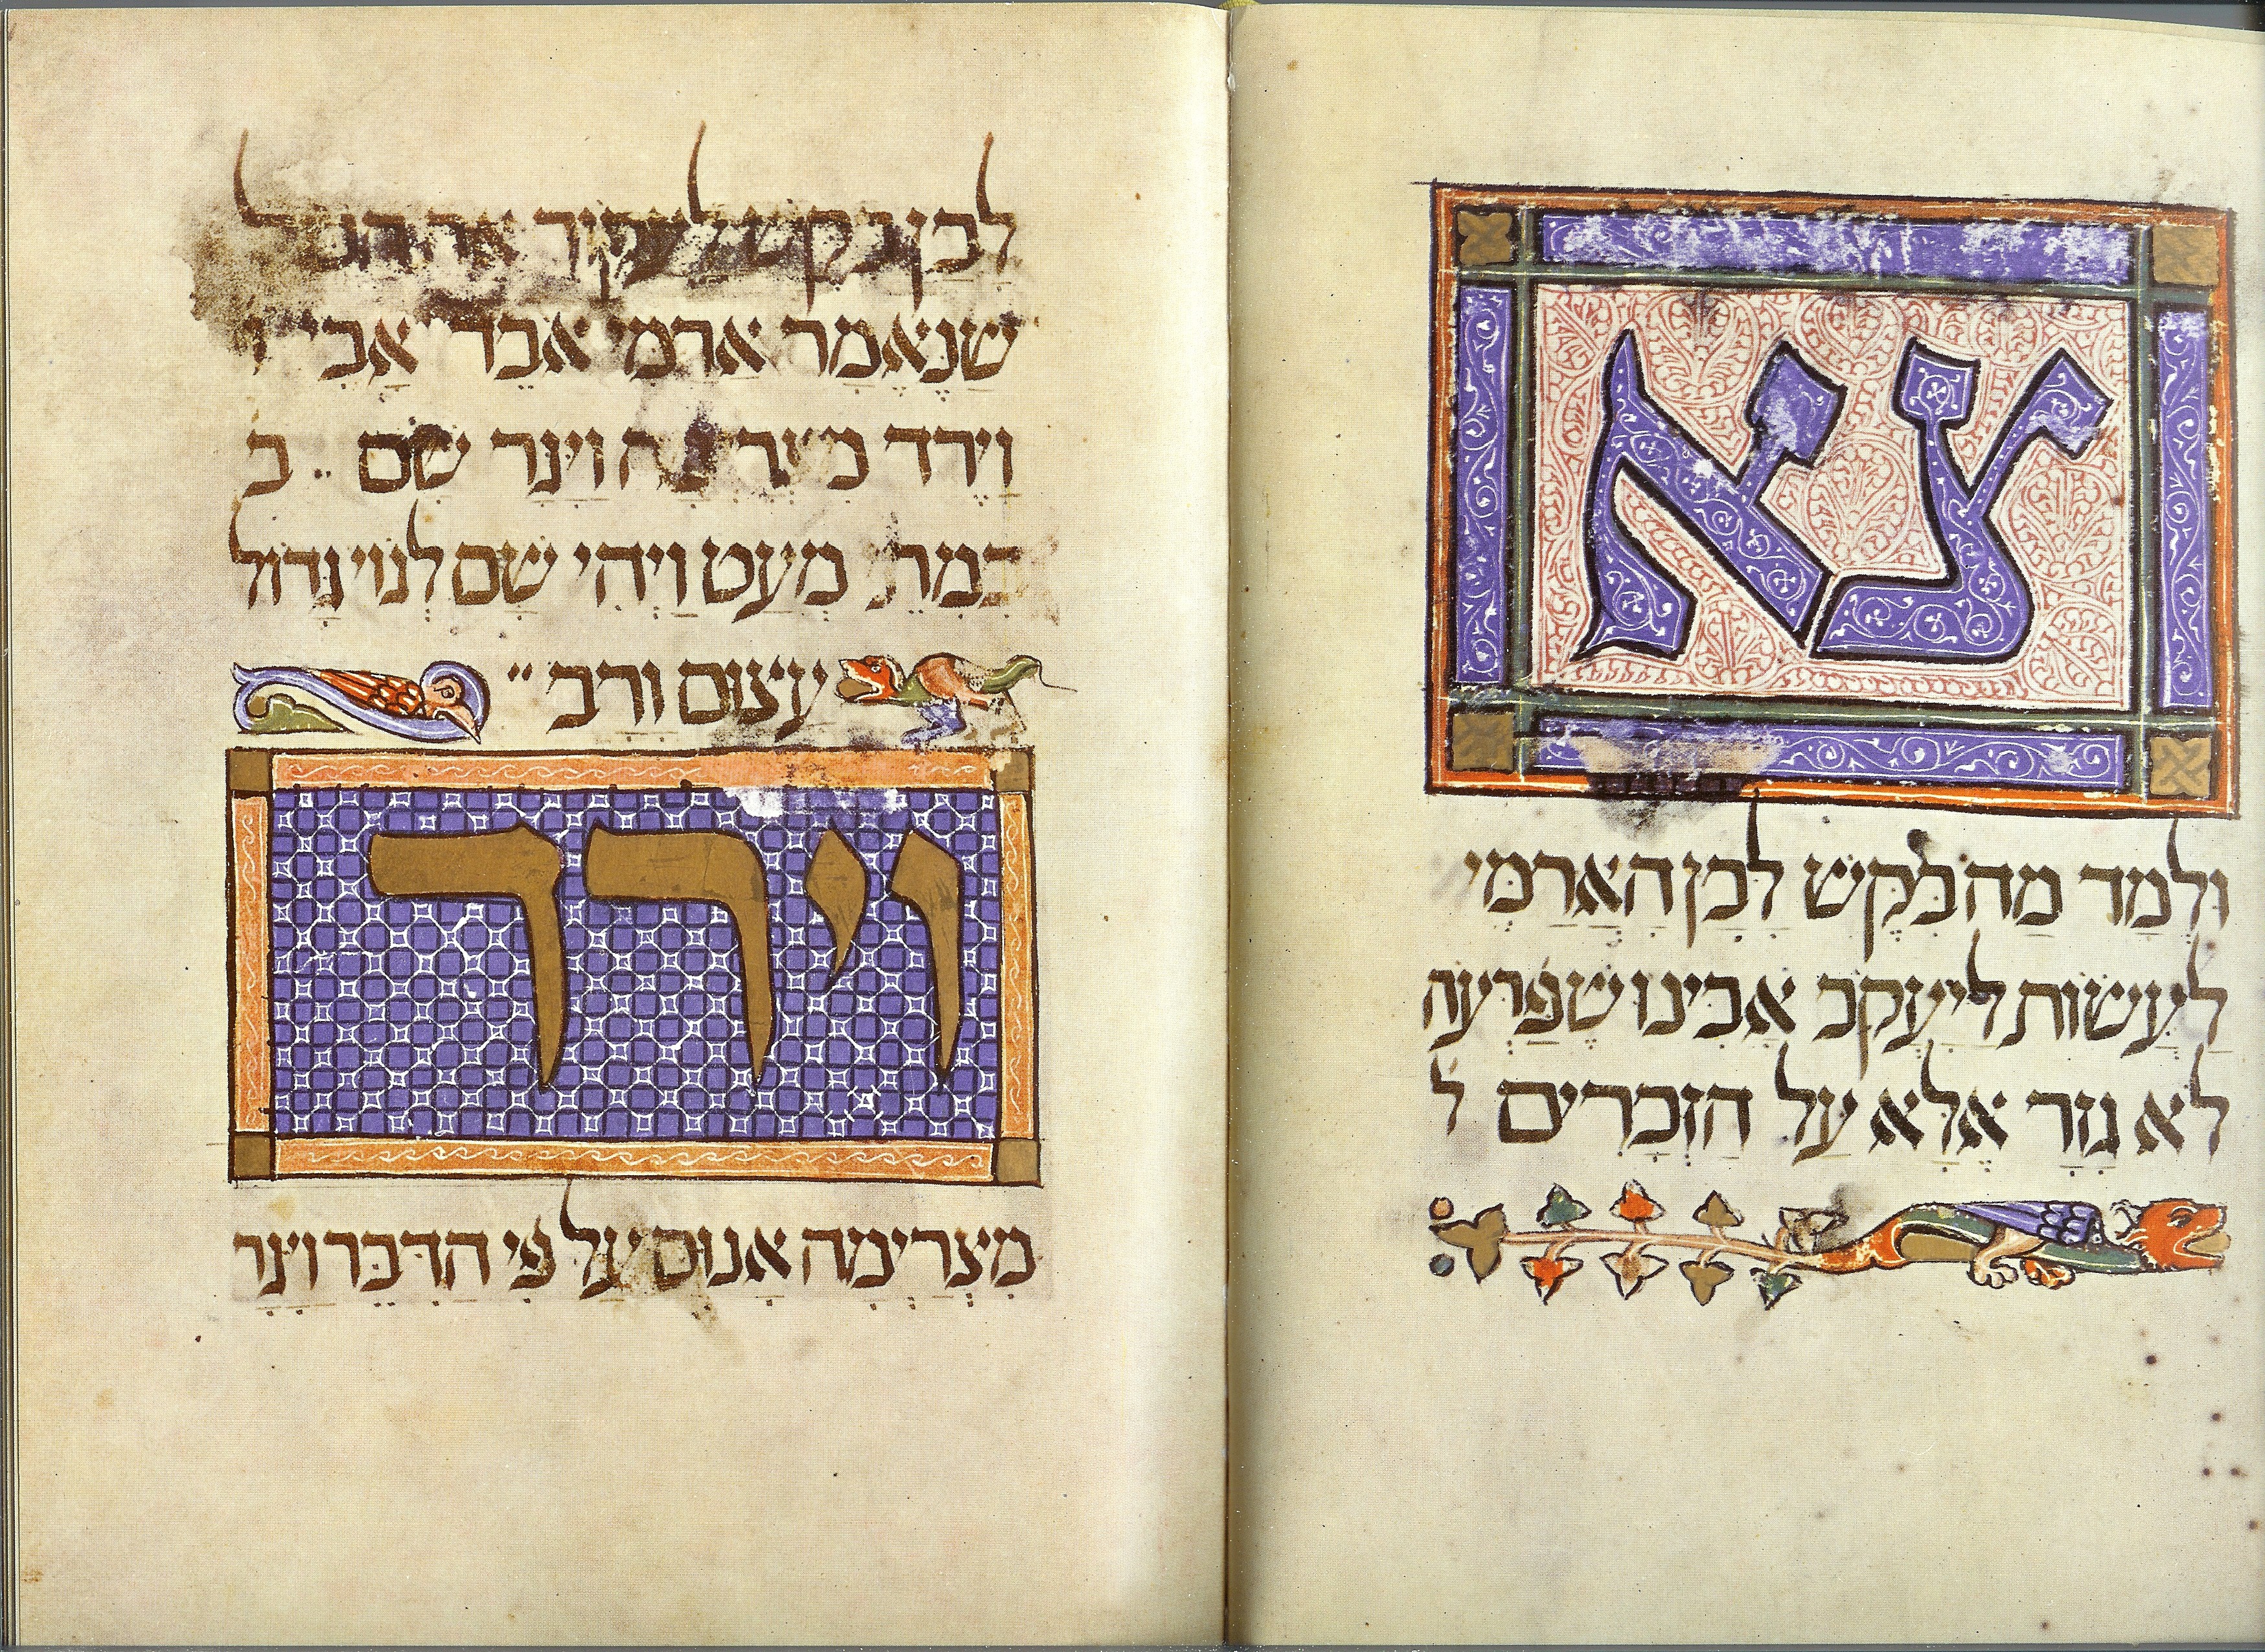 צא
ולמד מה בקש לבן הארמי
לעשות ליעקב אבינו שפרעה
לא גזר אלא על הזכרים ל
לבן בקש לעקור את הכל
שנאמר ארמי אבד אבי ו
וירד מצרימה ויגר שם ב
במתי מעט ויהי שם לגוי גדול
עצום ורב
וירד
מצרימה אנוס על פי הדבר ויגר